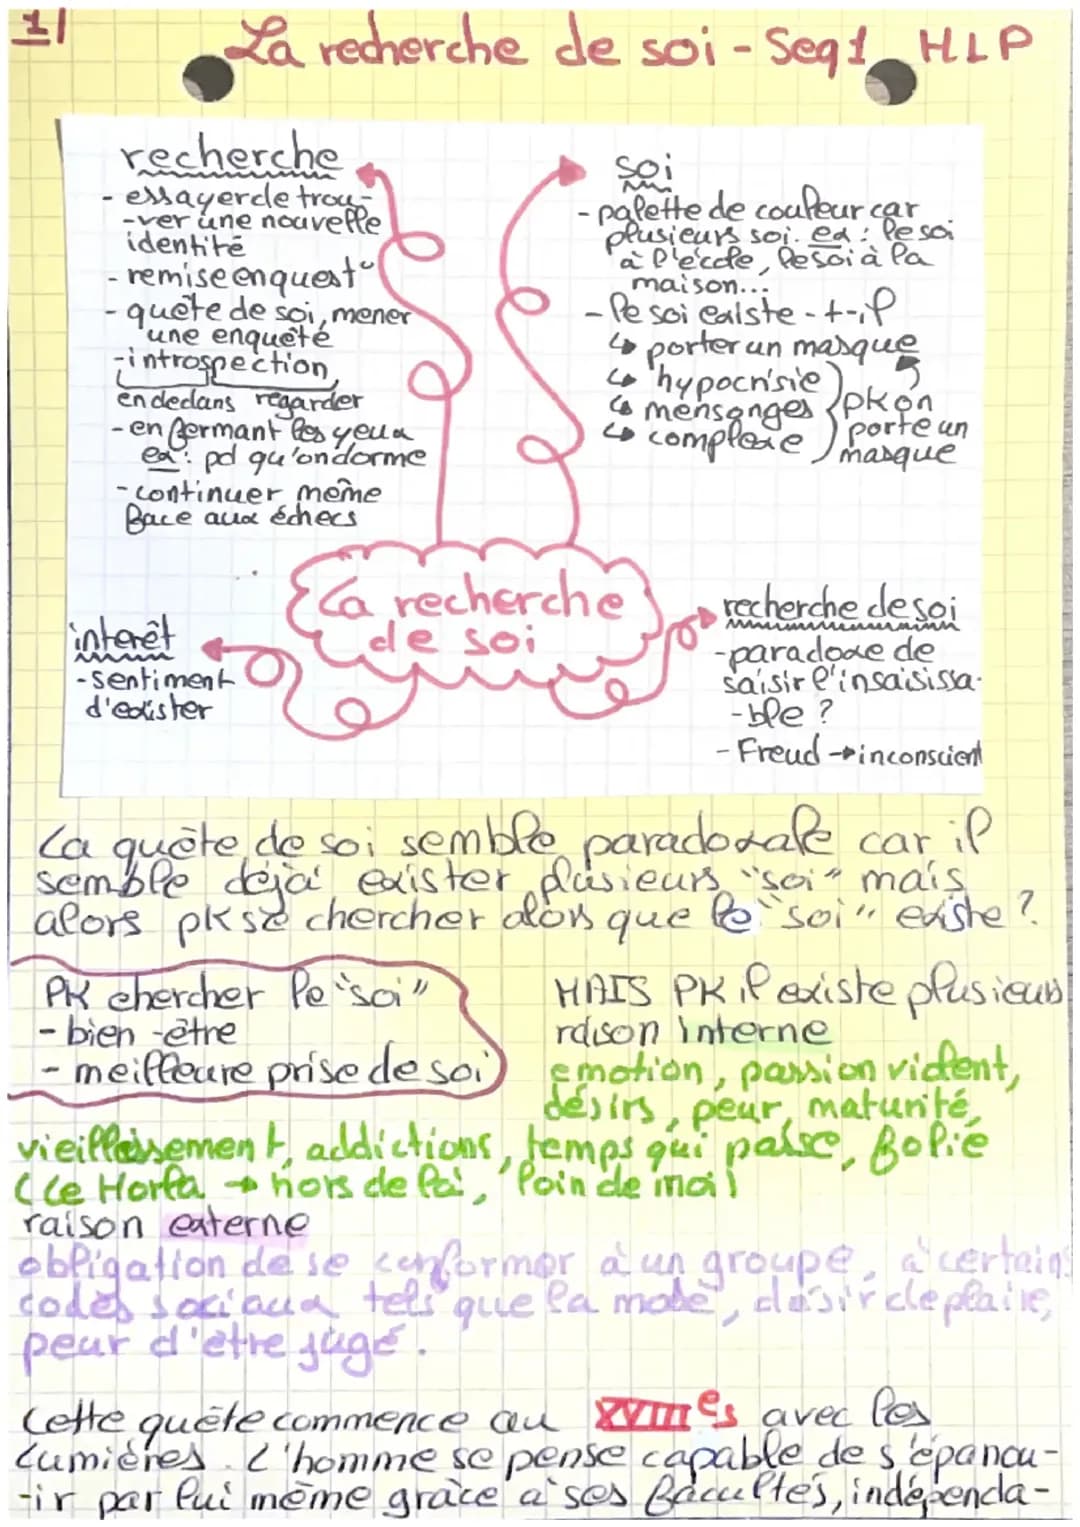 1/
La recherche de soi - Seq1 HLP
recherche
- essayer de trou-
-ver une nouvelle
identité
- remise en quest°
- quête de soi, mener
une enquête
- introspection
en dedans regarder
- en fermant les yeux
ex : pd qu'on dorme
- continuer même
face aux échecs
soi
- palette de couleur car
plusieurs soi. ex : le soi
à l'école, le soi à la
maison...
- le soi existe-t-il
↳ porter un masque
↳ hypocrisie
↳ mensonges
↳ complexe
pk on
porte un
masque
La recherche
de soi
interêt
- sentiment
d'exister
recherche de soi
- paradoxe de
saisir l'insaisissa-
-ble ?
- Freud → inconscient
La quête de soi semble paradoxale car il
semble déjà exister plusieurs "soi" mais
alors pk se chercher alors que le "soi" existe ?
PK chercher le "soi"
- bien-être
- meilleure prise de soi
MAIS PK il existe plusieurs
raison interne
emotion, passion violent,
désirs, peur, maturité,
vieillissement, addictions, temps qui passe, folie
(Le Horla → hors de la, loin de moi)
raison externe
obligation de se conformer à un groupe, à certains
codes sociaux tels que la mode, désir de plaire,
peur d'être jugé.
Cette quête commence au XVIIIes avec les
Lumières. L'homme se pense capable de s'épanou-
-ir par lui même grâce à ses facultés, indépenda-